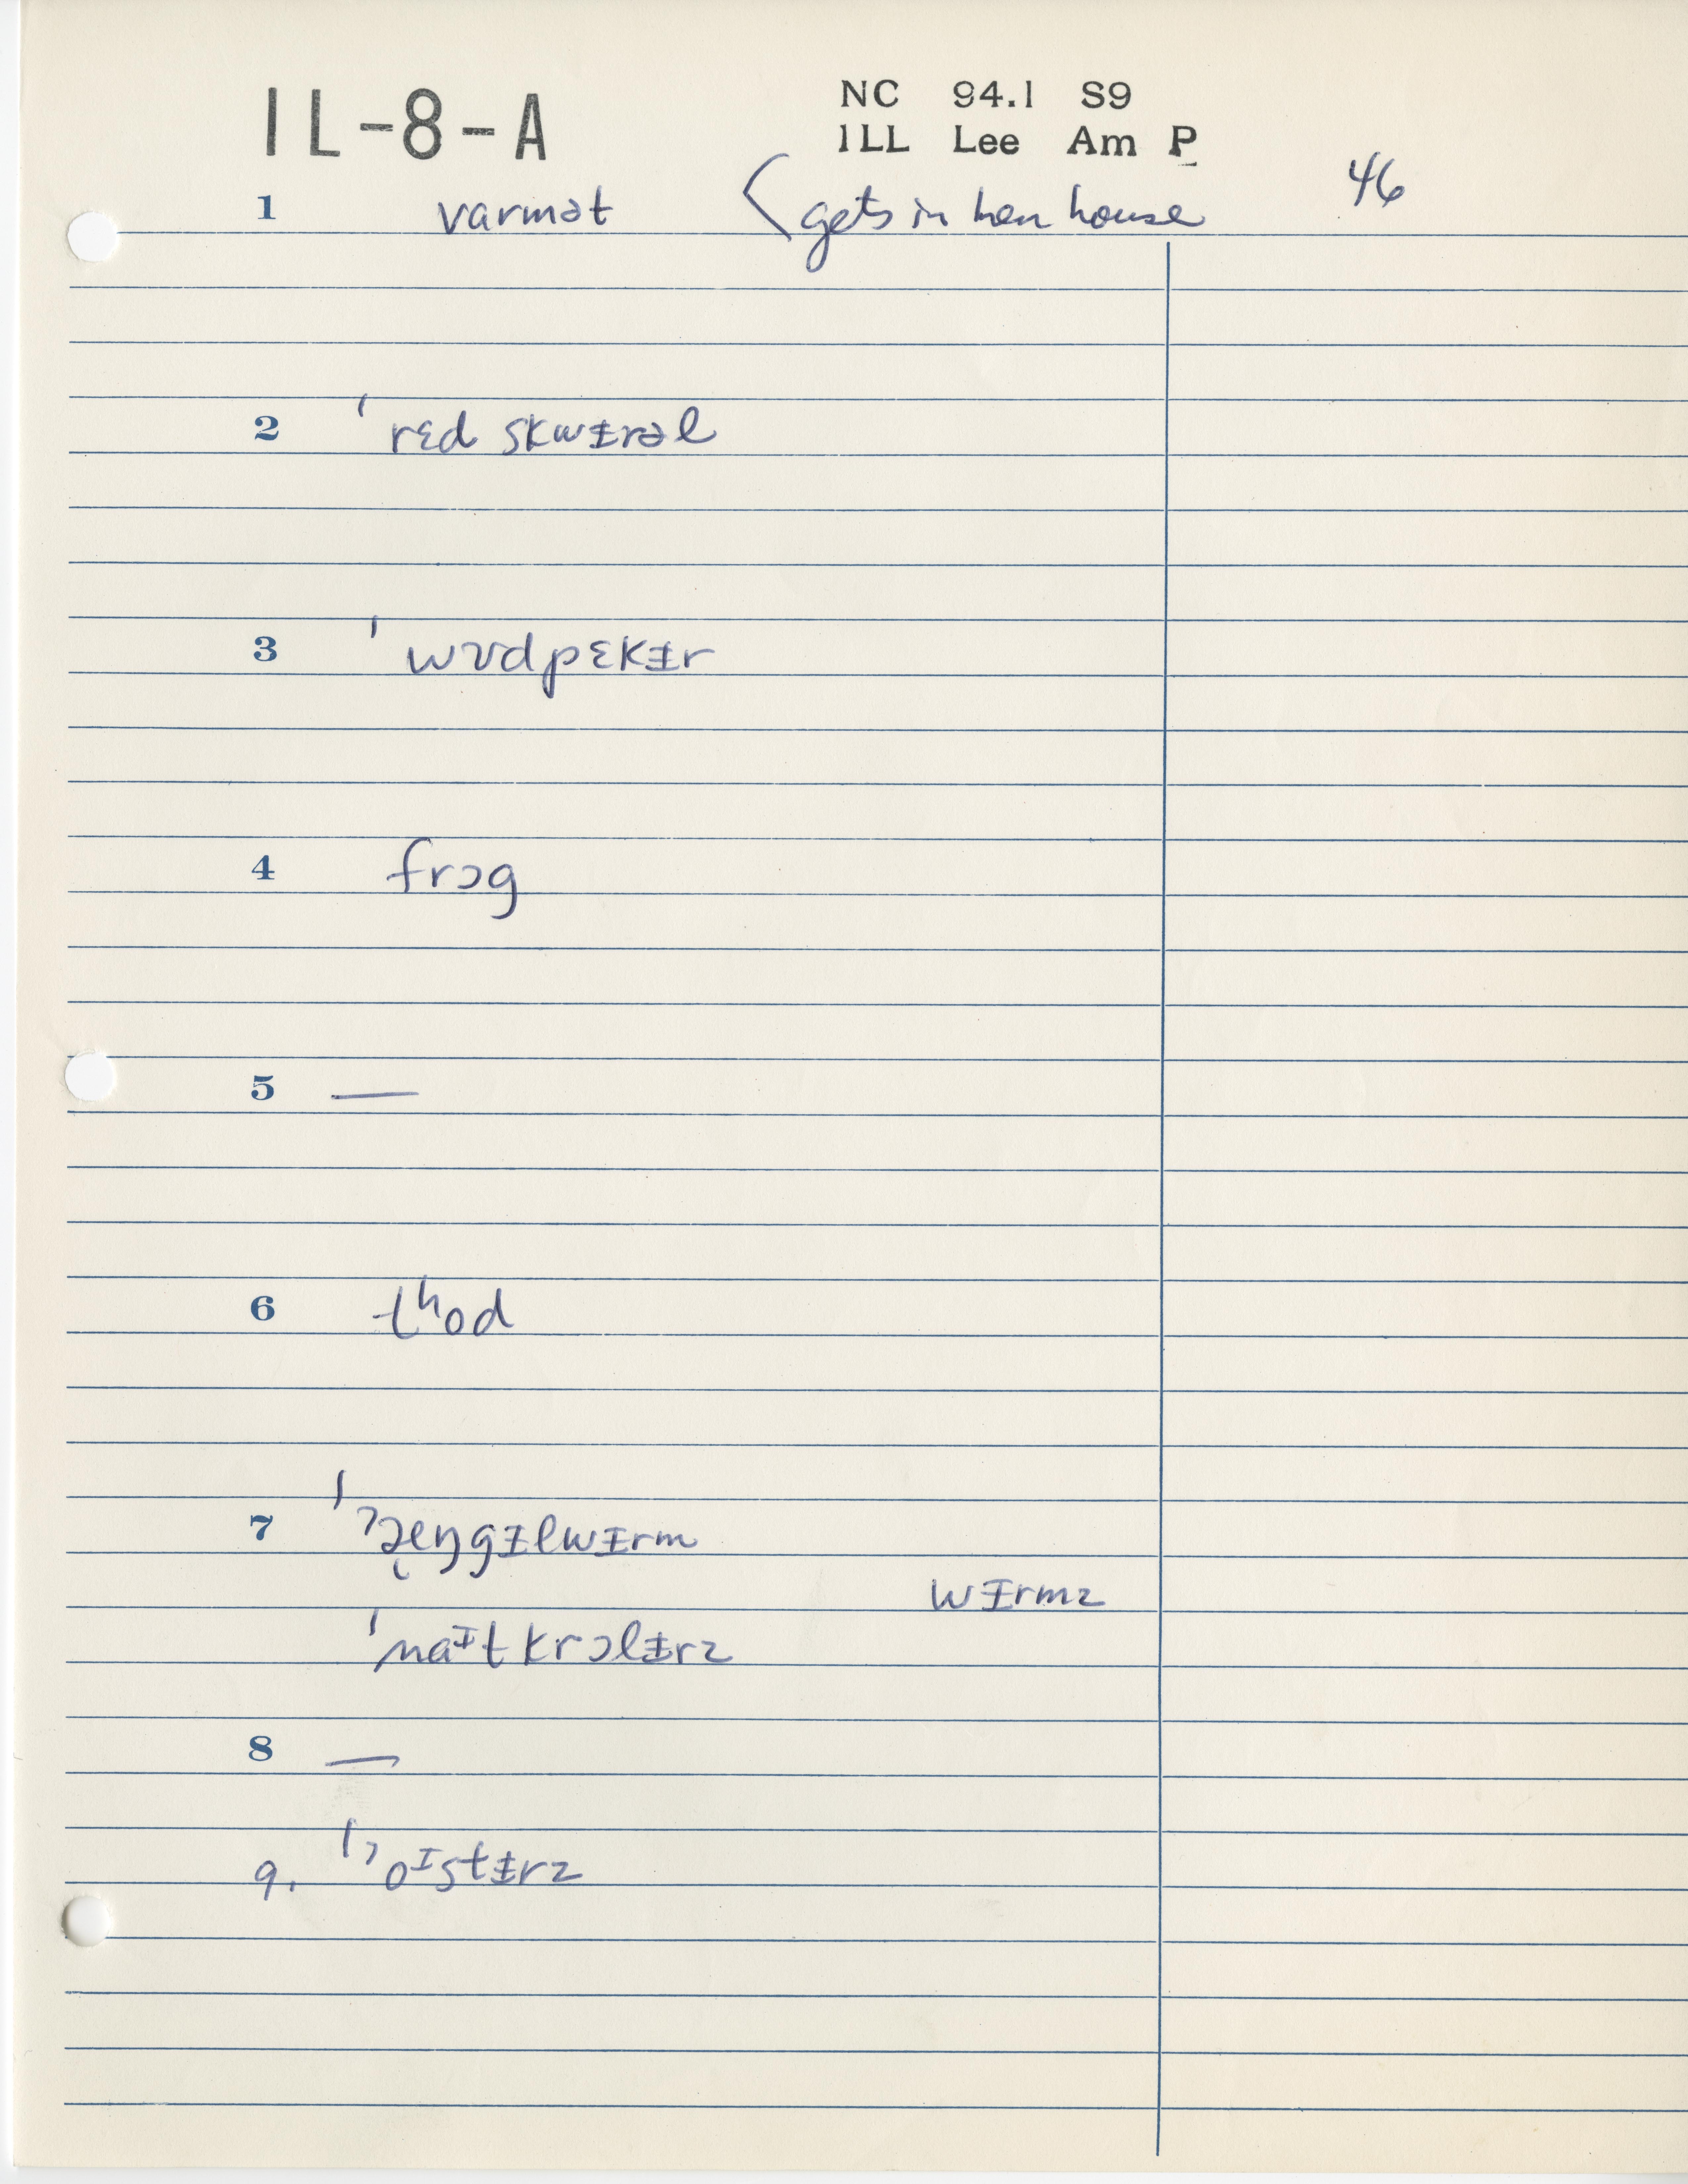 IL-8-A
NC 94.1 S9
ILL Lee Am P
46
1 varmət <gets in hen house
2 ˈrɛd skwɪ̵rəl
3 ˈwʊdpɛkɪ̵r
4 frɔg
5 —
6 tʰod
7 ˈʔæ̨ŋgɪ̵lwɪ̵rm
wɪ̵rmz
ˈnaᶦt krɔlɪ̵rz
8 —
9. ˈʔoᶦstɪ̵rz